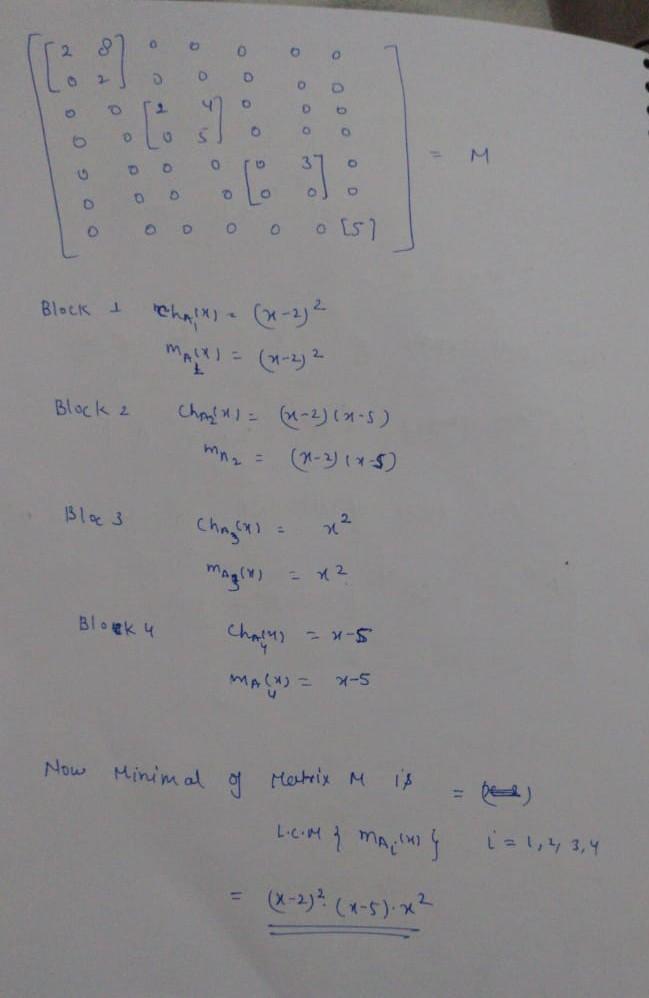 [2 8] 0 0 0 0 0
[0 2] 0 0 0 0 0
0 0 [2 4] 0 0 0
0 0 [0 5] 0 0 0 = M
0 0 0 0 [0 3] 0
0 0 0 0 [0 0] 0
0 0 0 0 0 0 [5]
Block 1 ch_A₁(x) = (x-2)²
m_A₁(x) = (x-2)²
Block 2 ch_A₂(x) = (x-2)(x-5)
m_A₂ = (x-2)(x-5)
Bloc 3 ch_A₃(x) = x²
m_A₃(x) = x²
Block 4 ch_A₄(x) = x-5
m_A₄(x) = x-5
Now Minimal of Matrix M is =
L.C.M { m_Aᵢ(x) } i = 1, 2, 3, 4
= (x-2)² · (x-5) · x²